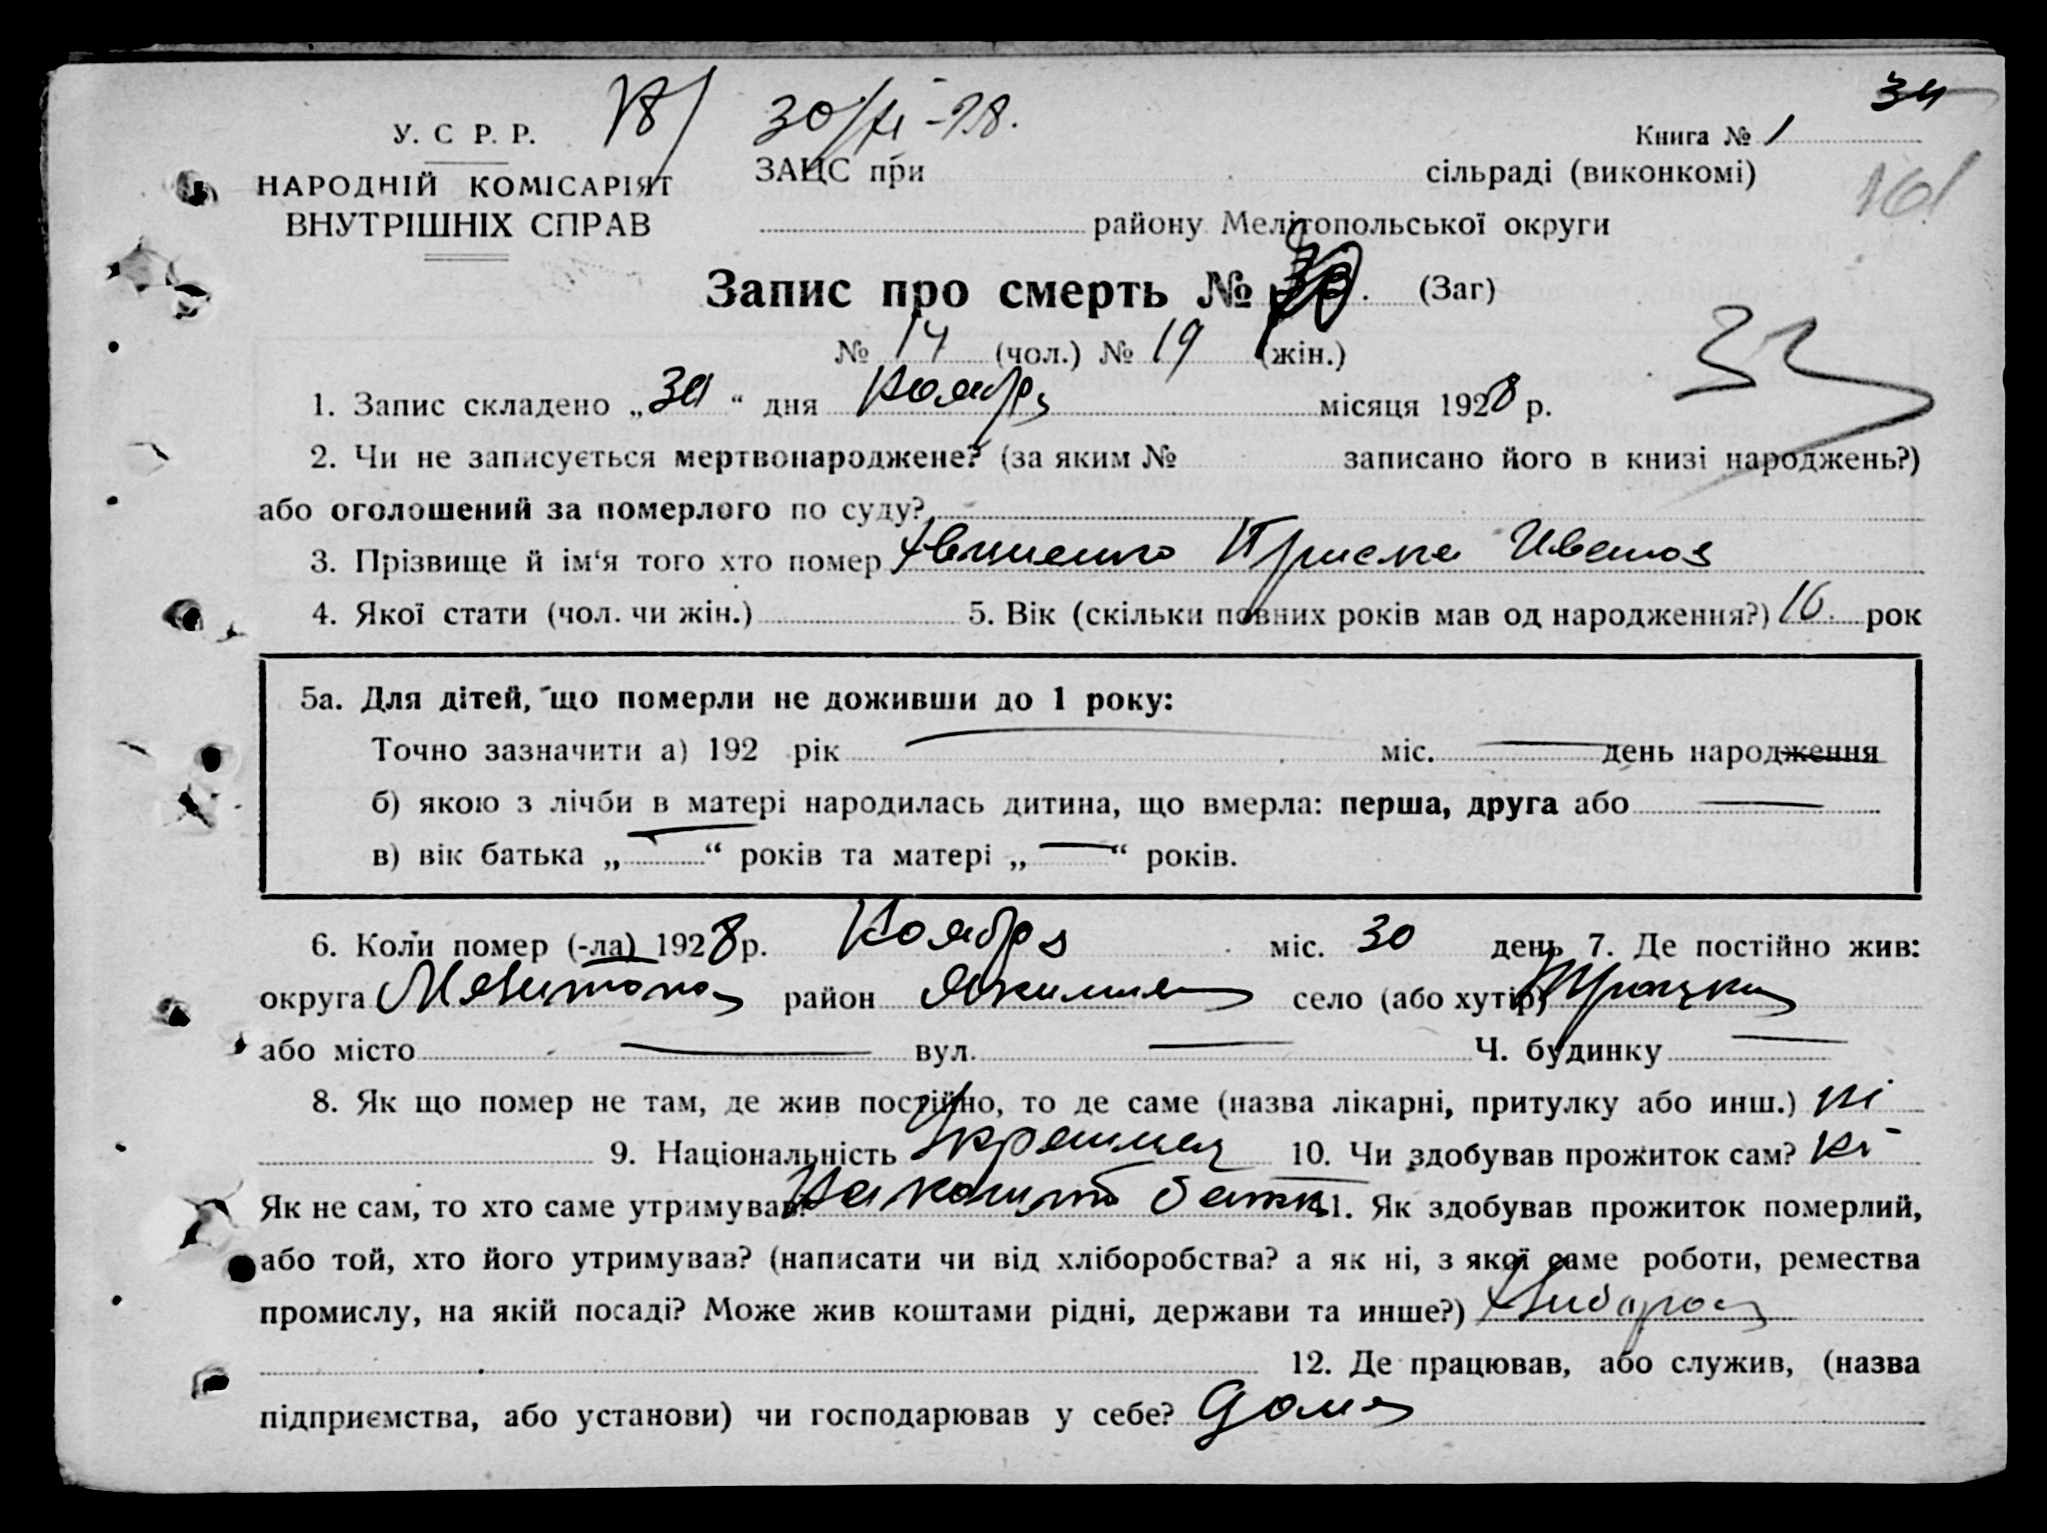 30/XI-28.
34
У. С. Р. Р.
Книга № 1
ЗАЦС при сільраді (виконкомі)
161
НАРОДНІЙ КОМІСАРІЯТ
ВНУТРІШНІХ СПРАВ
району Мелітопольської округи
Запис про смерть № (Заг)
33
№ 14 (чол.) № 19 (жін.)
1. Запис складено „30“ дня Ноября місяця 1928 р.
2. Чи не записується мертвонароджене? (за яким № записано його в книзі народжень?)
або оголошений за померлого по суду?
3. Прізвище й ім‘я того хто помер Приська Иванов
4. Якої стати (чол. чи жін.) 5. Вік (скільки повних років мав од народження?) 16 рок
5а. Для дітей, що померли не доживши до 1 року:
Точно зазначити а) 192 рік міс. день народження
б) якою з лічби в матері народилась дитина, що вмерла: перша, друга або
в) вік батька „ “ років та матері „ “ років.
6. Коли помер (-ла) 1928 р. Ноября міс. 30 день 7. Де постійно жив:
округа Мелитопол район Якимов село (або хутір) Троцком
або місто вул. Ч. будинку
8. Як що помер не там, де жив постійно, то де саме (назва лікарні, притулку або инш.) ні
9. Національність 10. Чи здобував прожиток сам? ні
Як не сам, то хто саме утримував? 11. Як здобував прожиток померлий,
або той, хто його утримував? (написати чи від хліборобства? а як ні, з якої саме роботи, ремества
промислу, на якій посаді? Може жив коштами рідні, держави та инше?)
12. Де працював, або служив, (назва
підприємства, або установи) чи господарював у себе? Дома